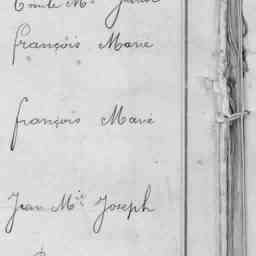 françois Marie
françois Marie
Jean M^ie Joseph